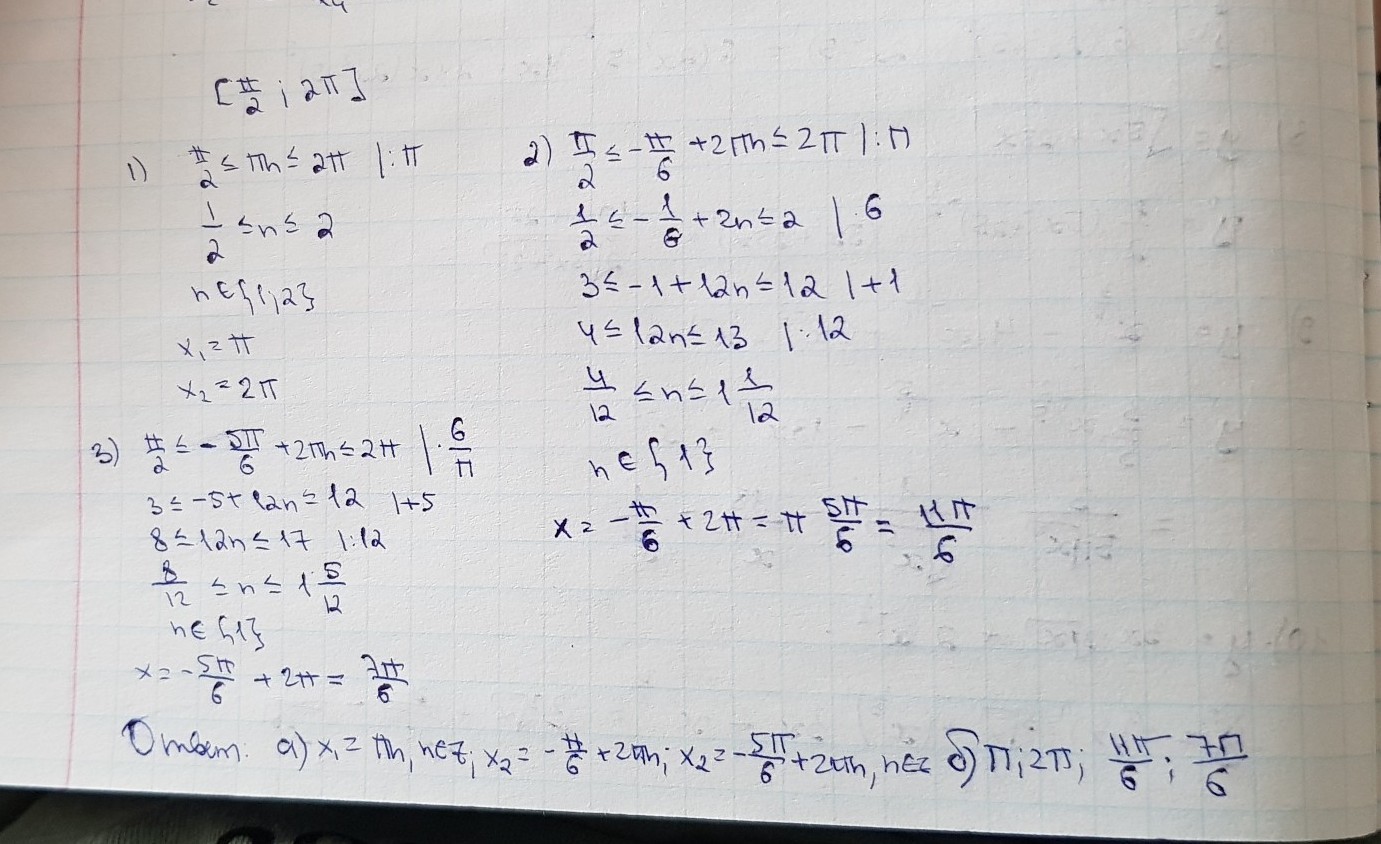 [π/2 ; 2π]
1) π/2 ≤ πn ≤ 2π |:π
1/2 ≤ n ≤ 2
n ∈ {1,2}
x₁ = π
x₂ = 2π
2) π/2 ≤ -π/6 + 2πn ≤ 2π |:π
1/2 ≤ -1/6 + 2n ≤ 2 |·6
3 ≤ -1 + 12n ≤ 12 |+1
4 ≤ 12n ≤ 13 |:12
4/12 ≤ n ≤ 1 1/12
n ∈ {1}
x = -π/6 + 2π = π 5π/6 = 11π/6
3) π/2 ≤ -5π/6 + 2πn ≤ 2π |·6/π
3 ≤ -5 + 12n ≤ 12 |+5
8 ≤ 12n ≤ 17 |:12
8/12 ≤ n ≤ 1 5/12
n ∈ {1}
x = -5π/6 + 2π = 7π/6
Ответ: а) x₁ = πn, n∈Z; x₂ = -π/6 + 2πn; x₂ = -5π/6 + 2πn, n∈Z б) π; 2π; 11π/6; 7π/6